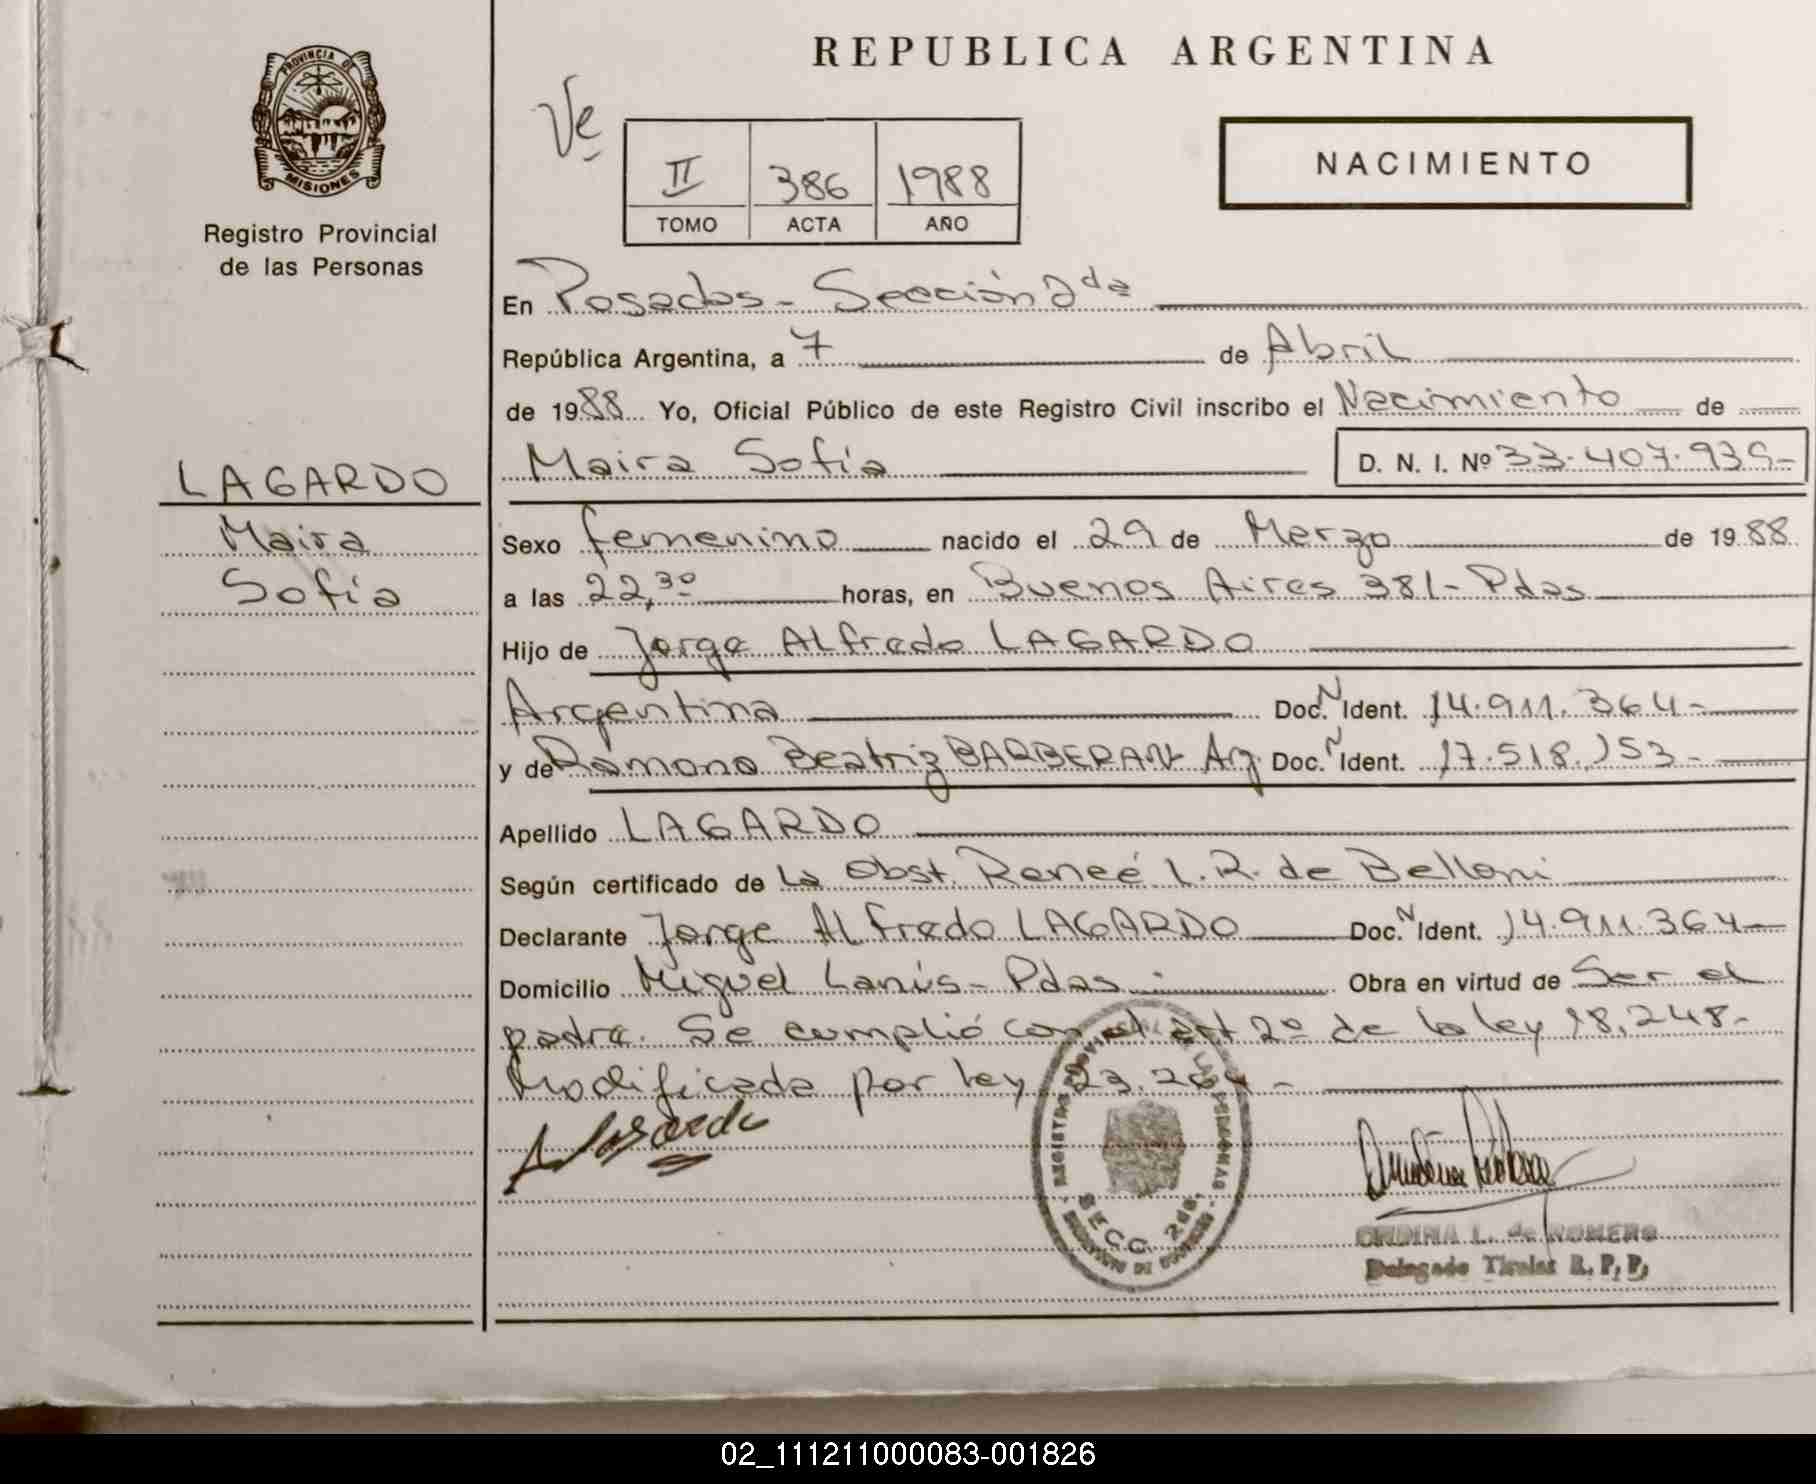 REPUBLICA ARGENTINA
PROVINCIA DE
MISIONES
Registro Provincial
de las Personas
Ve
II 386 1988
TOMO ACTA AÑO
NACIMIENTO
En Posadas - Sección 2da
República Argentina, a 7 de Abril
de 1988 Yo, Oficial Público de este Registro Civil inscribo el Nacimiento de
Maira Sofía D. N. I. Nº 33.407.939-
LAGARDO
Maira
Sofía
Sexo femenino nacido el 29 de Marzo de 1988
a las 22,30 horas, en Buenos Aires 381- Pdas
Hijo de Jorge Alfredo LAGARDO
Argentina Doc. N Ident. 14.911.364-
y de Ramona Beatriz BARBERAN Arg. Doc. N Ident. 17.518.153-
Apellido LAGARDO
Según certificado de La Obst. Reneé L.R. de Belloni
Declarante Jorge Alfredo LAGARDO Doc. N Ident. 14.911.364-
Domicilio Miguel Lanús - Pdas. Obra en virtud de Ser el
padre. Se cumplió con el art 2º de la ley 18.248-
Modificada por ley 23.264-
SECC. 2da.
L. de ROMERO
Delegado Titular R. P. P.
02_111211000083-001826